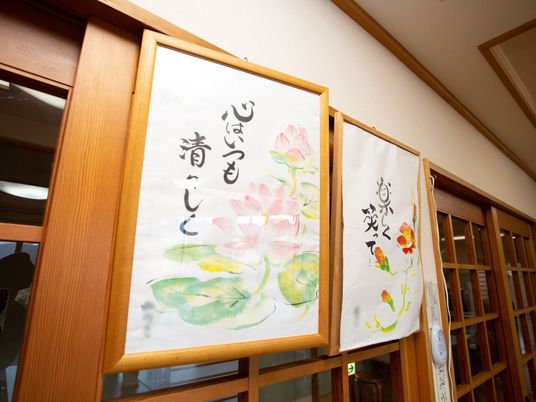 心はいつも
清らかしく
楽しく
笑って…